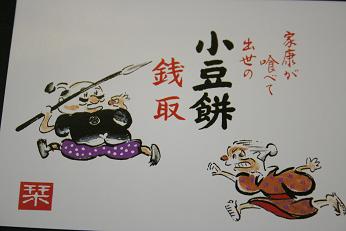 家康が
喰べて
出世の
小豆餅
銭取
栞